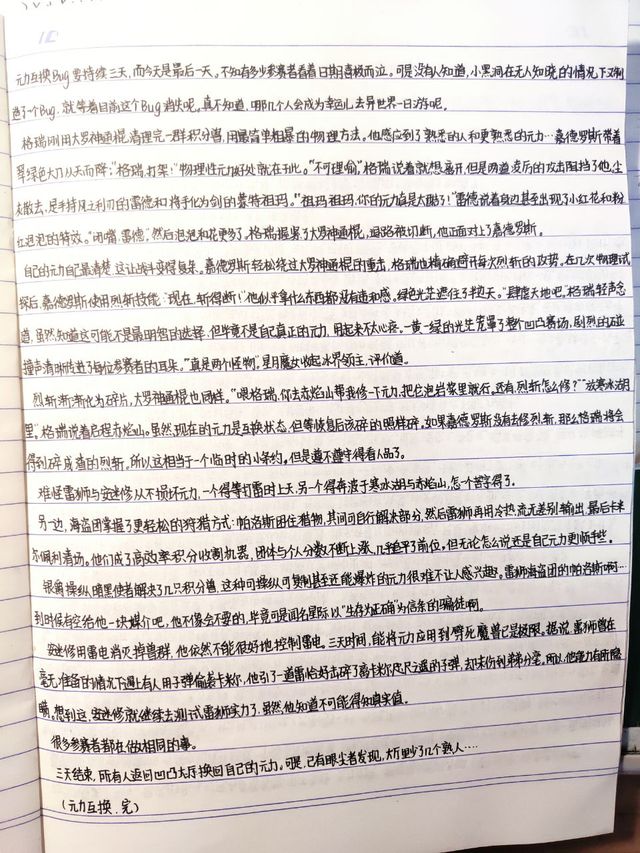 元力互换Bug要持续三天,而今天是最后一天。不知有多少参赛者看着日期喜极而泣。可是没有人知道,小黑洞在无人知晓的情况下又制
造了一个Bug.就等着目前这个Bug消失呢。真不知道,哪几个人会成为幸运儿去异世界一日游呢。
格瑞刚用大罗神通棍清理完一群积分兽,用最简单粗暴的物理方法。他感应到了熟悉的人和更熟悉的元力…嘉德罗斯带着
翠绿色大刀从天而降:"格瑞,打架!"物理性元力好处就在于此。"不可理喻。"格瑞说着就想离开,但是两道凌厉的攻击阻挡了他,尘
灰散去,是手持风之利刃的雷德和将手化为剑的蒙特祖玛。"祖玛祖玛,你的元力真是太酷了!"雷德说着身边甚至出现了小红花和粉
红泡泡的特效。"闭嘴,雷德。"然后泡泡和花更多了。格瑞握紧了大罗神通棍,退路被切断,他正面对上了嘉德罗斯。
自己的元力自己最清楚,这让战斗变得复杂。嘉德罗斯轻松绕过大罗神通棍的重击,格瑞也精确避开每次烈斩的攻势。在几次物理试
探后,嘉德罗斯使用烈斩技能:"现在,斩得断!"他似乎拿什么东西都没有违和感。绿色光芒遮住了半边天。"肆虐天地吧。"格瑞轻声念
道,虽然知道这可能不是最明智的选择,但毕竟不是自己真正的元力,用起来不太心疼。一黄一绿的光芒笼罩了整个凹凸赛场,剧烈的碰
撞声清晰传进了每位参赛者的耳朵。"真是两个怪物。"星月魔女收起冰界领主,评价道。
烈斩渐渐化为碎片,大罗神通棍也同样。"喂格瑞,你去赤焰山帮我修一下元力,把它泡岩浆里就行。还有,烈斩怎么修?""放寒冰湖
里。"格瑞说着启程赤焰山。虽然现在的元力是互换状态,但等恢复后该碎的照样碎。如果嘉德罗斯没有去修烈斩,那么格瑞将会
得到碎成渣的烈斩,所以这相当于一个临时的小条约。但是遵不遵守得看人品了。
难怪雷狮与安迷修从不损坏元力,一个得等打雷时上天,另一个得奔波于寒冰湖与赤焰山,怎一个苦字得了。
另一边,海盗团掌握了更轻松的狩猎方式:帕洛斯困住猎物,其间可自行解决部分,然后雷狮再用冷热流无差别输出,最后卡米
尔佩利清场。他们成了高效率积分收割机器,团体与个人分数不断上涨,几乎追平了前位,但无论怎么说还是自己元力更顺手些。
银爵操纵暗黑使者解决了几只积分兽,这种可操纵可复制甚至还能爆炸的元力很难不让人感兴趣。雷狮海盗团的帕洛斯啊…
到时候有空给他一块媒介吧,他不像会不要的,毕竟可是闻名星际以"生存为正确"为信条的骗徒啊。
安迷修用雷电消灭掉兽群,他依然不能很好地控制雷电。三天时间,能将元力应用到劈死魔兽已是极限。据说,雷狮曾在
毫无准备的情况下遇上有人用子弹偷袭卡米尔,他引了一道雷恰好击碎了离卡米尔咫尺之遥的子弹,却未伤到弟弟分毫。所以,他能力有所隐
瞒。想到这,安迷修就继续去测试雷狮实力了,虽然他知道不可能得知真实值。
很多参赛者都在做相同的事。
三天结束,所有人返回凹凸大厅换回自己的元力。可是,已有眼尖者发现,大厅里少了几个熟人…
(元力互换.完)